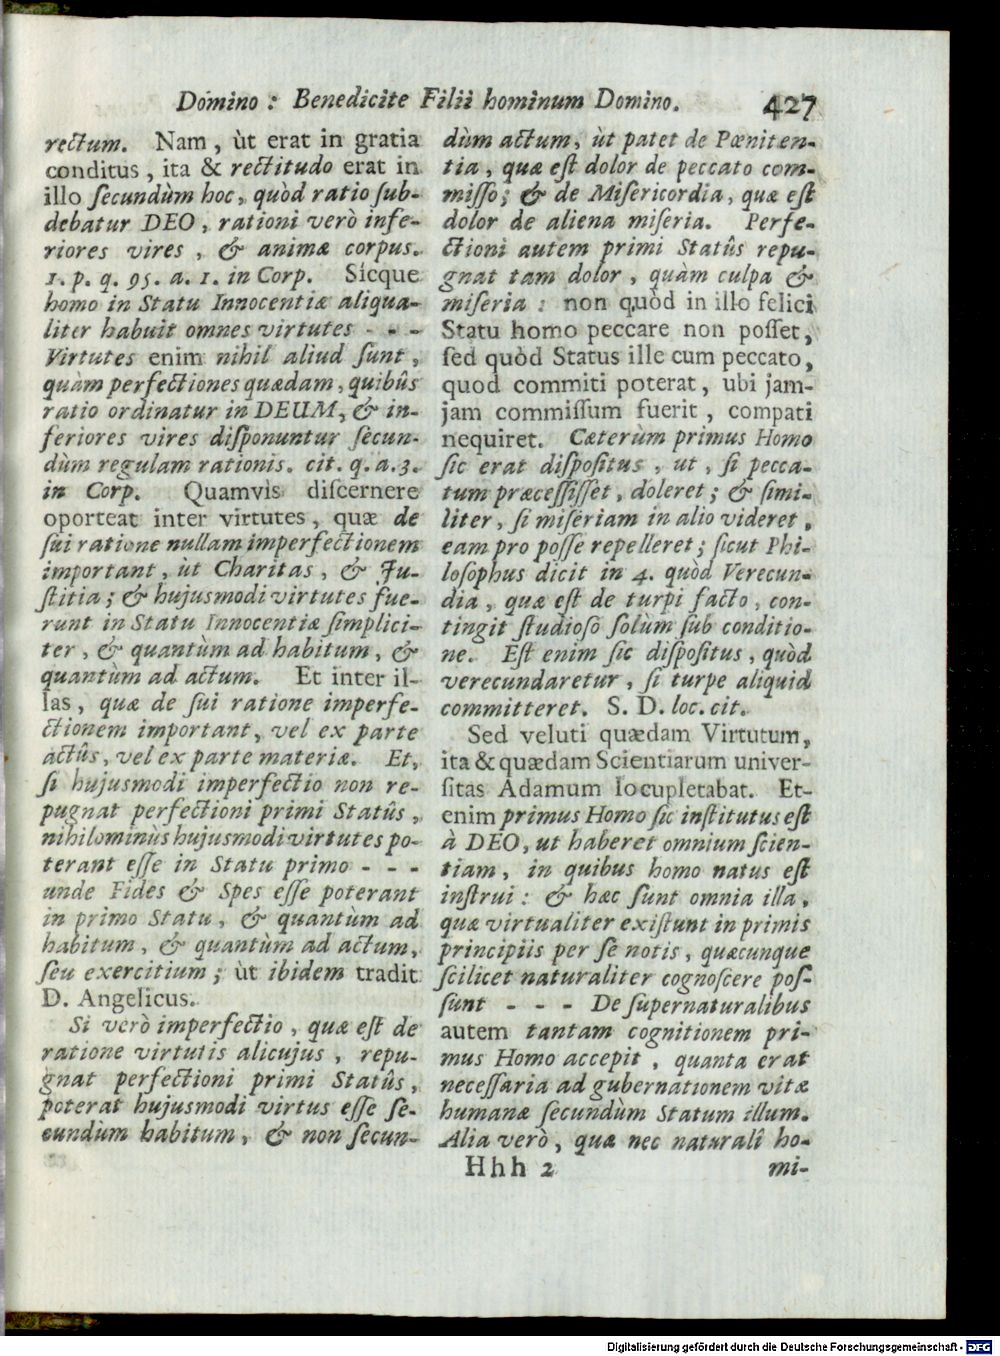 Domino: Benedicite Filii hominum Domino. 427
rectum. Nam, ùt erat in gratia
conditus, ita & rectitudo erat in
illo ſecundùm hoc, quòd ratio ſub-
debatur DEO, rationi verò infe-
riores vires, & animæ corpus.
1. p. q. 95. a. 1. in Corp. Sicque
homo in Statu Innocentiæ aliqua-
liter habuit omnes virtutes - - -
Virtutes enim nihil aliud ſunt,
quàm perfectiones quædam, quibûs
ratio ordinatur in DEUM, & in-
feriores vires diſponuntur ſecun-
dùm regulam rationis. cit. q. a. 3.
in Corp. Quamvis diſcernere
oporteat inter virtutes, quæ de
ſui ratione nullam imperfectionem
important, ùt Charitas, & Ju-
ſtitia; & hujusmodi virtutes fue-
runt in Statu Innocentiæ ſimplici-
ter, & quantùm ad habitum, &
quantùm ad actum. Et inter il-
las, quæ de ſui ratione imperfe-
ctionem important, vel ex parte
actûs, vel ex parte materiæ. Et,
ſi hujusmodi imperfectio non re-
pugnat perfectioni primi Statûs,
nihilominùs hujusmodi virtutes po-
terant eſſe in Statu primo - - -
unde Fides & Spes eſſe poterant
in primo Statu, & quantùm ad
habitum, & quantùm ad actum,
ſeu exercitium; ùt ibidem tradit
D. Angelicus.
Si verò imperfectio, quæ eſt de
ratione virtutis alicujus, repu-
gnat perfectioni primi Statûs,
poterat hujusmodi virtus eſſe ſe-
cundùm habitum, & non ſecun-
dùm actum, ùt patet de Pœniten-
tia, quæ eſt dolor de peccato com-
miſſo; & de Miſericordia, quæ eſt
dolor de aliena miſeria. Perfe-
ctioni autem primi Statûs repu-
gnat tam dolor, quàm culpa &
miſeria: non quòd in illo felici
Statu homo peccare non poſſet,
ſed quòd Status ille cum peccato,
quod commiti poterat, ubi jam-
jam commiſſum fuerit, compati
nequiret. Cæterùm primus Homo
ſic erat diſpoſitus, ut, ſi pecca-
tum præceſſiſſet, doleret; & ſimi-
liter, ſi miſeriam in alio videret,
eam pro poſſe repelleret; ſicut Phi-
loſophus dicit in 4. quòd Verecun-
dia, quæ eſt de turpi facto, con-
tingit ſtudioſo ſolùm ſub conditio-
ne. Eſt enim ſic diſpoſitus, quòd
verecundaretur, ſi turpe aliquid
committeret. S. D. loc. cit.
Sed veluti quædam Virtutum,
ita & quædam Scientiarum univer-
ſitas Adamum locupletabat. Et-
enim primus Homo ſic inſtitutus eſt
à DEO, ut haberet omnium ſcien-
tiam, in quibus homo natus eſt
inſtrui: & hæc ſunt omnia illa,
quæ virtualiter exiſtunt in primis
principiis per ſe notis, quæcunque
ſcilicet naturaliter cognoſcere poſ-
ſunt - - - De ſupernaturalibus
autem tantam cognitionem pri-
mus Homo accepit, quanta erat
neceſſaria ad gubernationem vitæ
humanæ ſecundùm Statum illum.
Alia verò, quæ nec naturalî ho-
Hhh 2 mi-
Digitalisierung gefördert durch die Deutsche Forschungsgemeinschaft - DFG